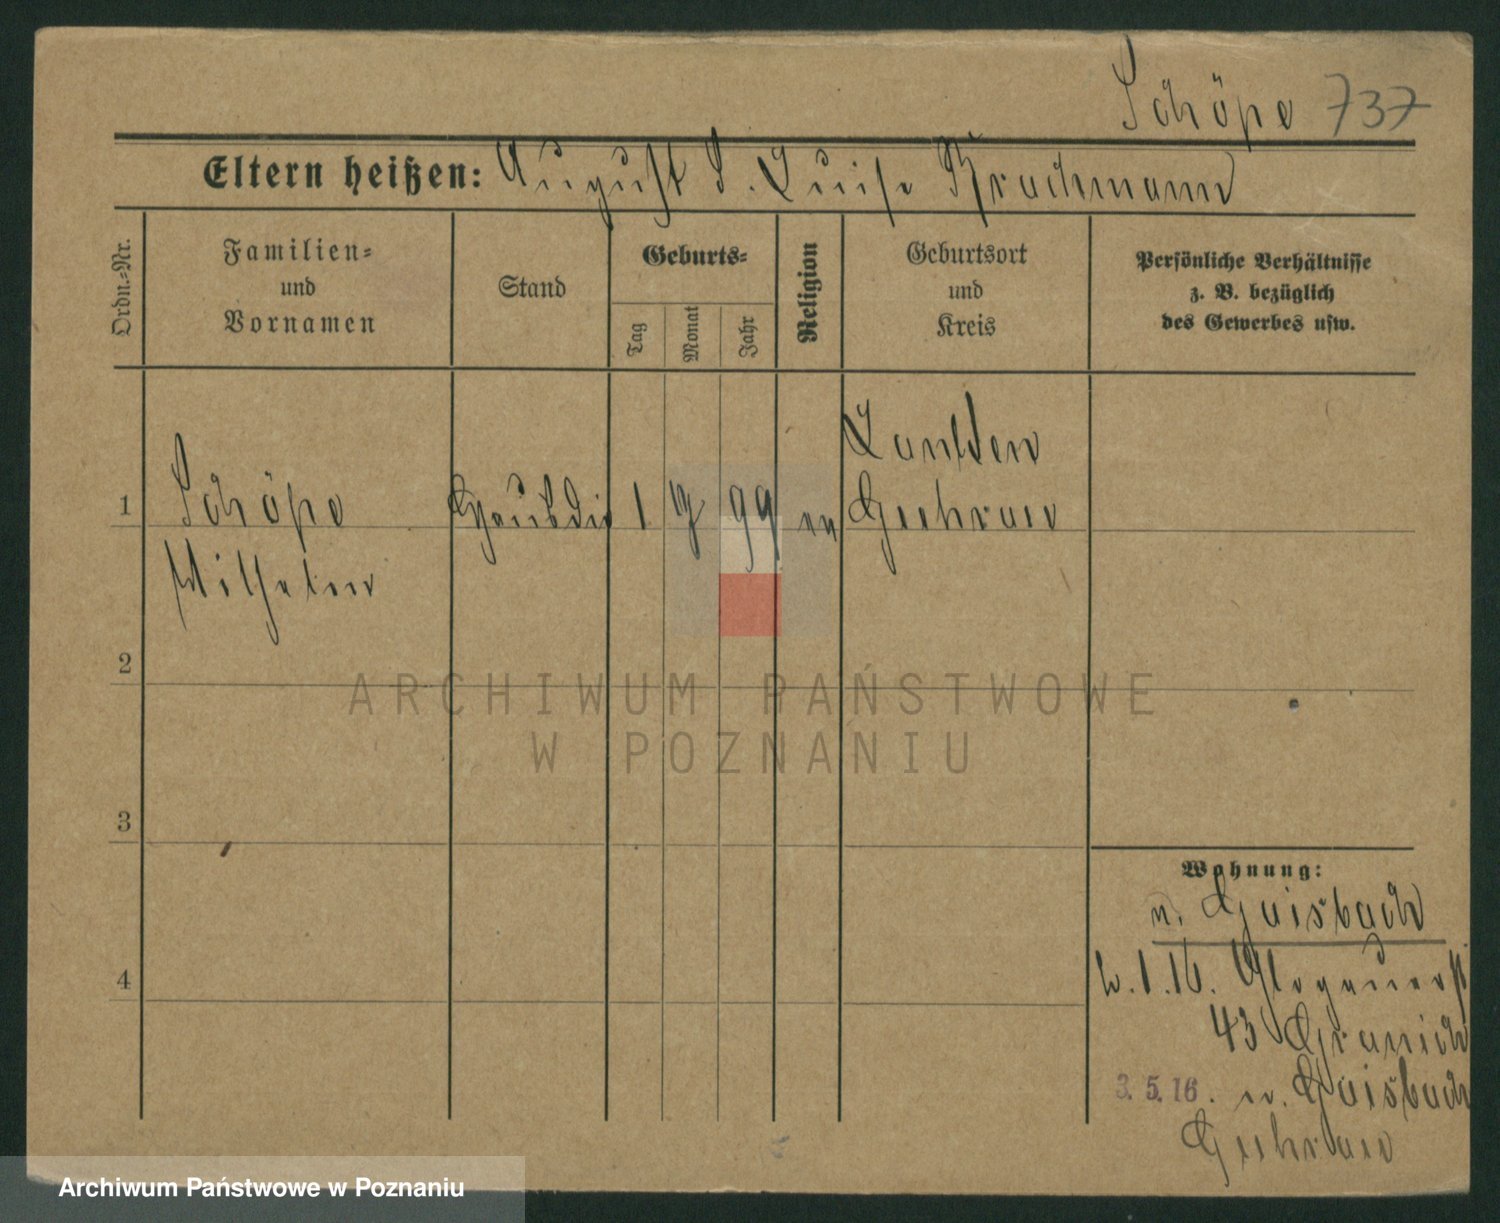 Schöpe 737
Eltern heißen: August S. Luise Brachmann
Ordn.-Nr.
Familien-
und
Vornamen
Stand
Geburts-
Tag
Monat
Jahr
Religion
Geburtsort
und
Kreis
Persönliche Verhältnisse
z. B. bezüglich
des Gewerbes usw.
1
Schöpe
Wilhelm
Hausdie
1
99
ev
Guhrau
2
3
4
Wohnung:
n. Gaisbach
1.16. Glogauerst
43
3.5.16. n. Gaisbach
Guhrau
ARCHIWUM PAŃSTWOWE
W POZNANIU
Archiwum Państwowe w Poznaniu